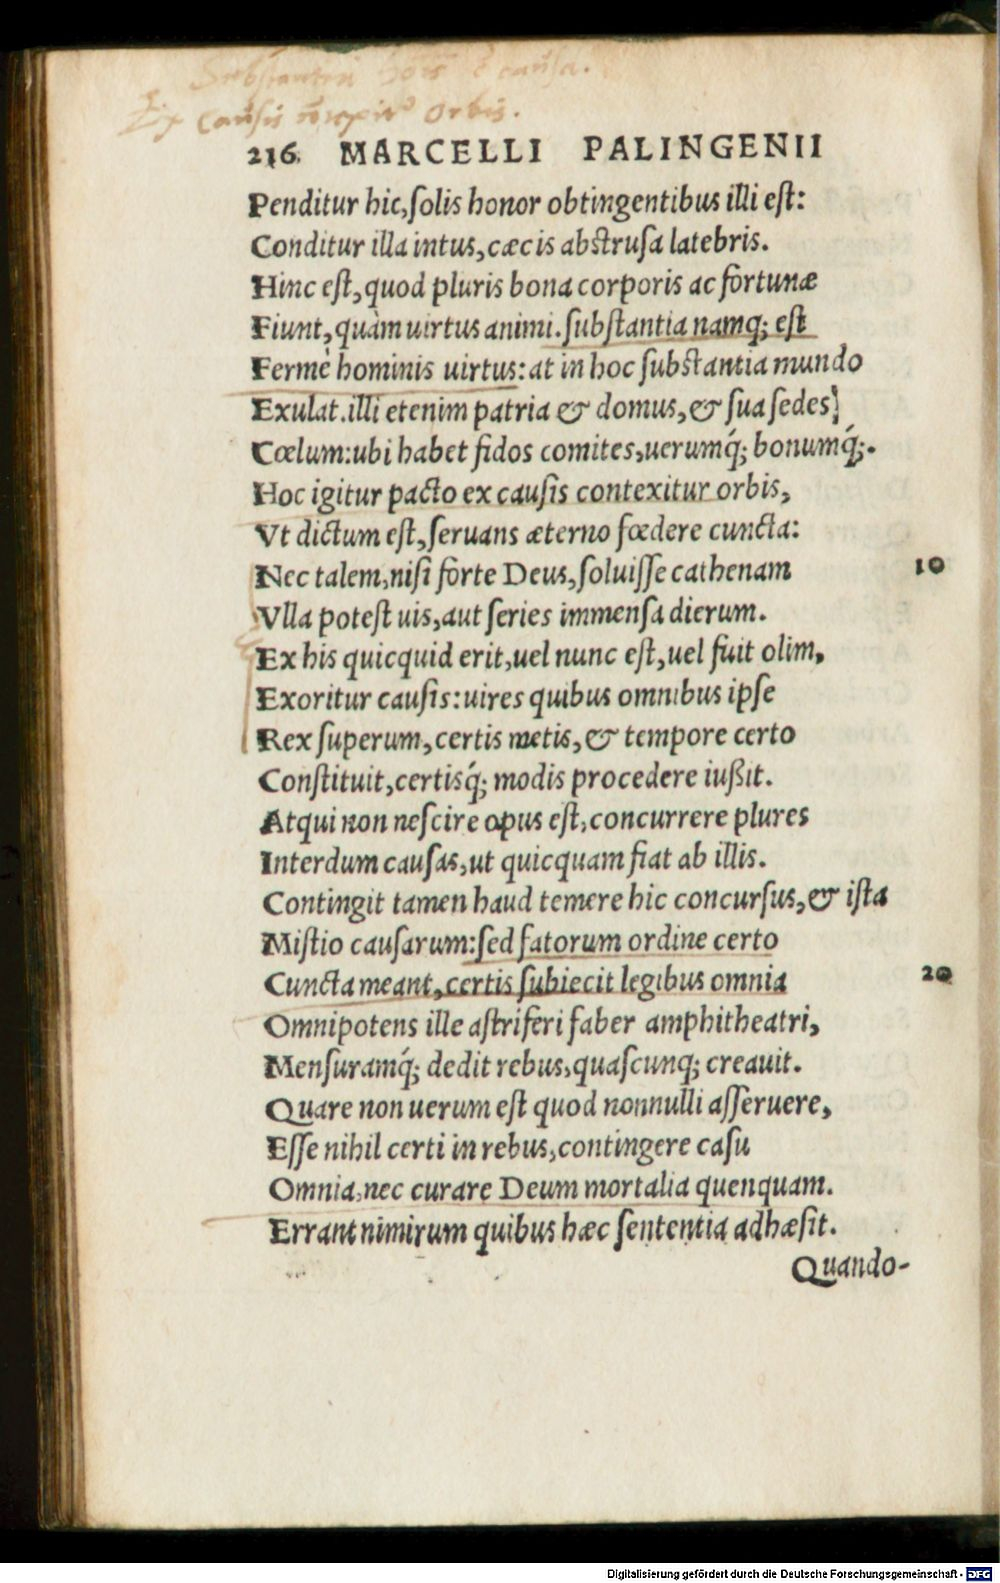 Substantia hois e causa.
Ex causis contexitur Orbis.
216. MARCELLI PALINGENII
Penditur hic,ſolis honor obtingentibus illi eſt:
Conditur illa intus,cæcis abſtruſa latebris.
Hinc eſt,quod pluris bona corporis ac fortunæ
Fiunt,quàm uirtus animi.ſubſtantia namq; eſt
Fermè hominis uirtus:at in hoc ſubſtantia mundo
Exulat.illi etenim patria & domus,& ſua ſedes;
Cœlum:ubi habet fidos comites,uerumq́; bonumq́;.
Hoc igitur pacto ex cauſis contexitur orbis,
Vt dictum eſt,ſeruans æterno fœdere cuncta:
Nec talem,niſi forte Deus,ſoluiſſe cathenam 10
Vlla poteſt uis,aut ſeries immenſa dierum.
Ex his quicquid erit,uel nunc eſt,uel fuit olim,
Exoritur cauſis:uires quibus omnibus ipſe
Rex ſuperum,certis metis,& tempore certo
Conſtituit,certisq́; modis procedere iußit.
Atqui non neſcire opus eſt,concurrere plures
Interdum cauſas,ut quicquam fiat ab illis.
Contingit tamen haud temere hic concurſus,& iſta
Miſtio cauſarum:ſed fatorum ordine certo
Cuncta meant,certis ſubiecit legibus omnia 20
Omnipotens ille aſtriferi faber amphitheatri,
Menſuramq́; dedit rebus,quaſcunq; creauit.
Quare non uerum eſt quod nonnulli aſſeruere,
Eſſe nihil certi in rebus,contingere caſu
Omnia,nec curare Deum mortalia quenquam.
Errant nimirum quibus hæc ſententia adhæſit.
Quando-
Digitalisierung gefördert durch die Deutsche Forschungsgemeinschaft - DFG